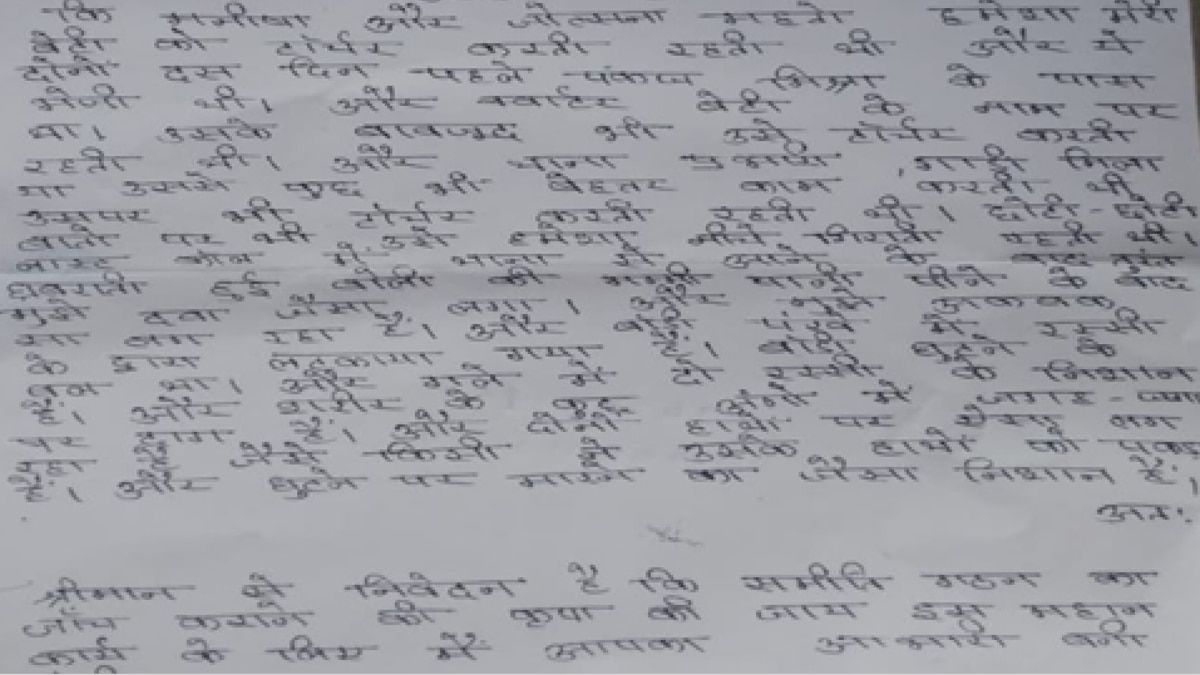 कि मनीषा और जोत्सना महतो हमेशा मेरी
बेटी को टॉर्चर करती रहती थी और ये
दोनों दस दिन पहले पंकज मिश्रा के पास
भेजी थी। और क्वार्टर बेटी के नाम पर
था। उसके बावजुद भी उसे टॉर्चर करती
रहती थी। और थाना प्रभारी गाड़ी मिला
था उससे कुछ भी बेहतर काम करती थी
उसपर भी टॉर्चर करती रहती थी। छोटी-छोटी
बातों पर भी उसे हमेशा नीचे गिराती रहती थी।
लास्ट कॉल में थाना से आने के बाद तुरंत
घबराती हुई बोली की मम्मी पानी पीने के बाद
मुझे दवा जैसा लगा। और मुझे अकबक
सा लग रहा है। और पंखे में रस्सी
के द्वारा लटकाया गया है। घुटने के
बल था। और गले में दो रस्सी के निशान
है। और शरीर के कई अंगों में जगह-जगह
पर दाग है। और दोनों हाथों पर
जैसे किसी ने उसके हाथों को पकड़
। और घुटने पर मारने का जैसा निशान है।
अतः
श्रीमान से निवेदन है कि समीति गठन का
जाँच कराने की कृपा की जाय इस महान
कार्य के लिए मैं आपका आभारी बनी